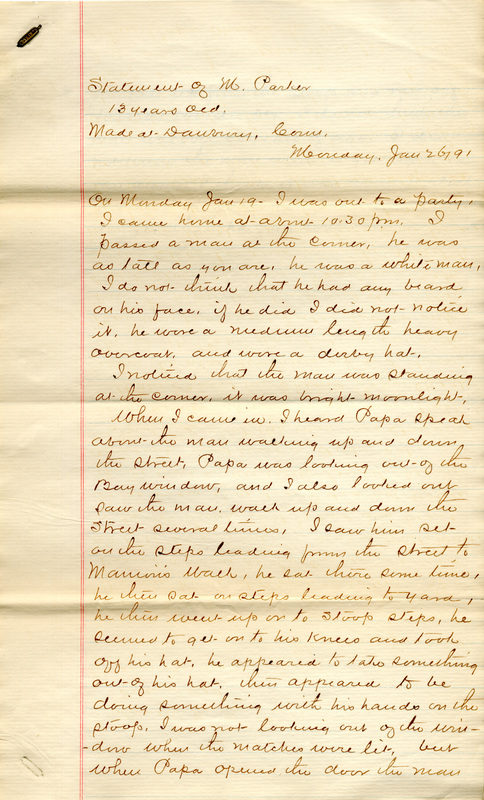 Statement of M. Parker
13 years old.
Made at Danbury, Conn.
Monday, Jan 26/91
On Monday Jan 19 - I was out to a party,
I came home at about 10.30 pm. I
passed a man at the corner, he was
as tall as you are, he was a white man,
I do not think that he had any beard
on his face, if he did I did not notice
it, he wore a medium length heavy
overcoat, and wore a derby hat.
I noticed that the man was standing
at the corner, it was bright moonlight,
When I came in. I heard Papa speak
about the man walking up and down
the street, Papa was looking out of the
Bay window, and I also looked out
saw the man walk up and down the
Street several times, I saw him set
on the steps leading from the street to
walk, he sat there some time,
he then sat on steps leading to yard,
he then went up on to stoop steps, he
seemed to get on to his knees and took
off his hat, he appeared to take something
out of his hat, then appeared to be
doing something with his hands on the
stoop, I was not looking out of the win-
-dow when the matches were lit, but
when Papa opened the door the man